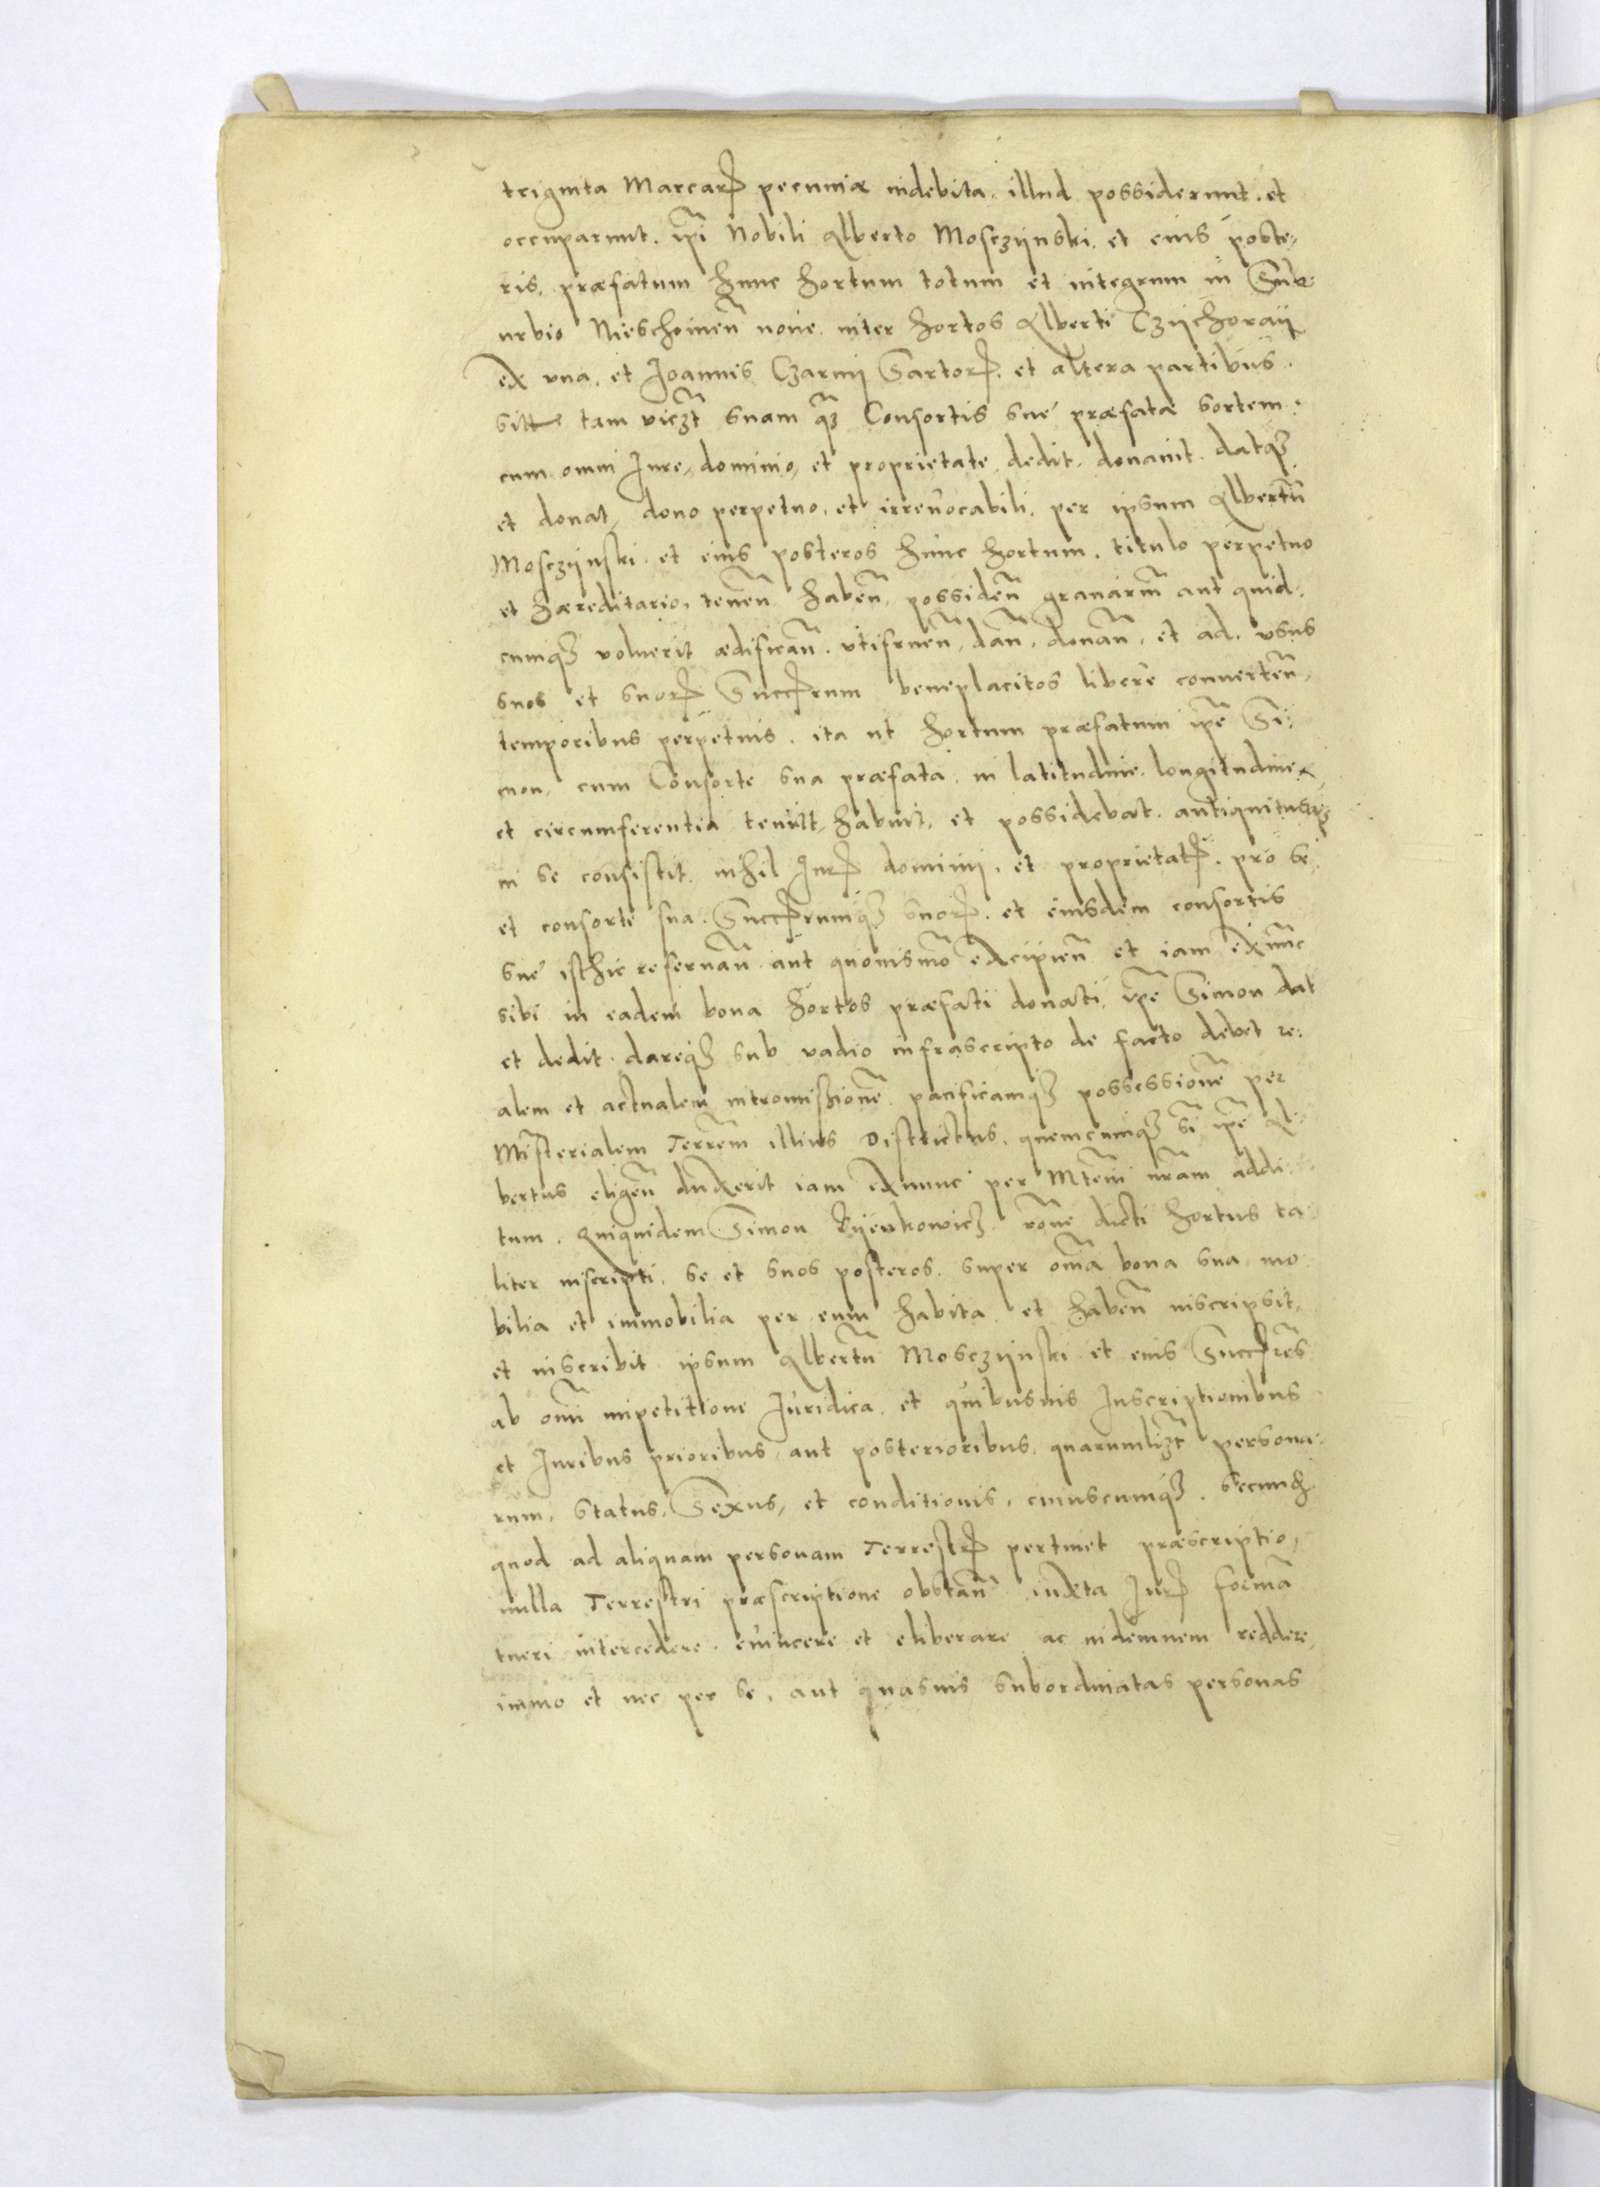 triginta Marcarꝝ pecuniæ indebita. illud possiderunt. et
occuparunt. ip̃i Nobili Alberto Mosczÿnski. et eius poste,
ris, præfatum hunc hortum totum et integrum in Sub:
urbio Nieschovieñ noue inter hortos Alberti Czÿchoraÿ
ex vna. et Joannis Czarnÿ Sartorꝝ. et altera partibus.
tam vicz̃t suam qꝫ Consortis suę præfatæ sortem.
cum omni Jure, dominio, et proprietate, dedit, donauit. datqꝫ
et donat, dono perpetuo, et irreuocabili, per ipsum Albertũ
Mosczÿnski et eius posteros hunc hortum, titulo perpetuo
et hæreditario, teneñ habeñ, possideñ granariũ aut quid:
cumqꝫ voluerit ædificañ. vtifrueñ, dañ, donañ, et ad vsus
suos et suorꝝ Succꝝrum beneplacitos libere conuerteñ,
temporibus perpetuis. ita ut hortum præfatum ip̃e Si:
mon, cum Consorte sua præfata in latitudine. longitudine
et circumferentia tenuit, habuit, et possidebat. antiquitusqꝫ
in se consistit. nihil Jurꝭ dominii, et proprietatꝭ. pro se
et consorte sua. Succꝝrumqꝫ suorꝝ. et eiusdem consortis
suę isthic reseruañ aut quouismõ excipieñ et iam exnũc
sibi in eadem bona hortos præfati donati, ip̃e Simon dat
et dedit. dareqꝫ sub vadio infrascripto de facto debet re:
alem et actualem intromissionẽ pacificamqꝫ possessionẽ per
Mĩsterialem Terrẽm illius Districtus, quemcumqꝫ s̃i ip̃e Al:
bertus eligeñ duxerit iam exnunc per Mtẽm nr̃am addi:
tum. Quiquidem Simon Rÿenkowicz rõne dicti hortus ta:
liter inscripti, se et suos posteros. super om̃a bona sua mo
bilia et immobilia per eum habita et habeñ inscripsit,
et inscribit ipsum Albertũ Mosczÿnski et eius Succꝝrẽs
ab om̃i impetitione Juridica. et quibusuis Inscriptionibus
et Juribus prioribus, aut posterioribus. quarumlizt̃ persona:
rum, status, Sexus, et conditionis, cuiuscumqꝫ. Secundũ
quod ad aliquam personam Terrestrꝭ pertinet præscriptio,
nulla Terrestri præscriptione obstañ iuxta Jurꝭ formã
tueri intercedere. euincere et eliberare ac indemnem reddere,
immo et nec per se, aut quasuis subordinatas personas